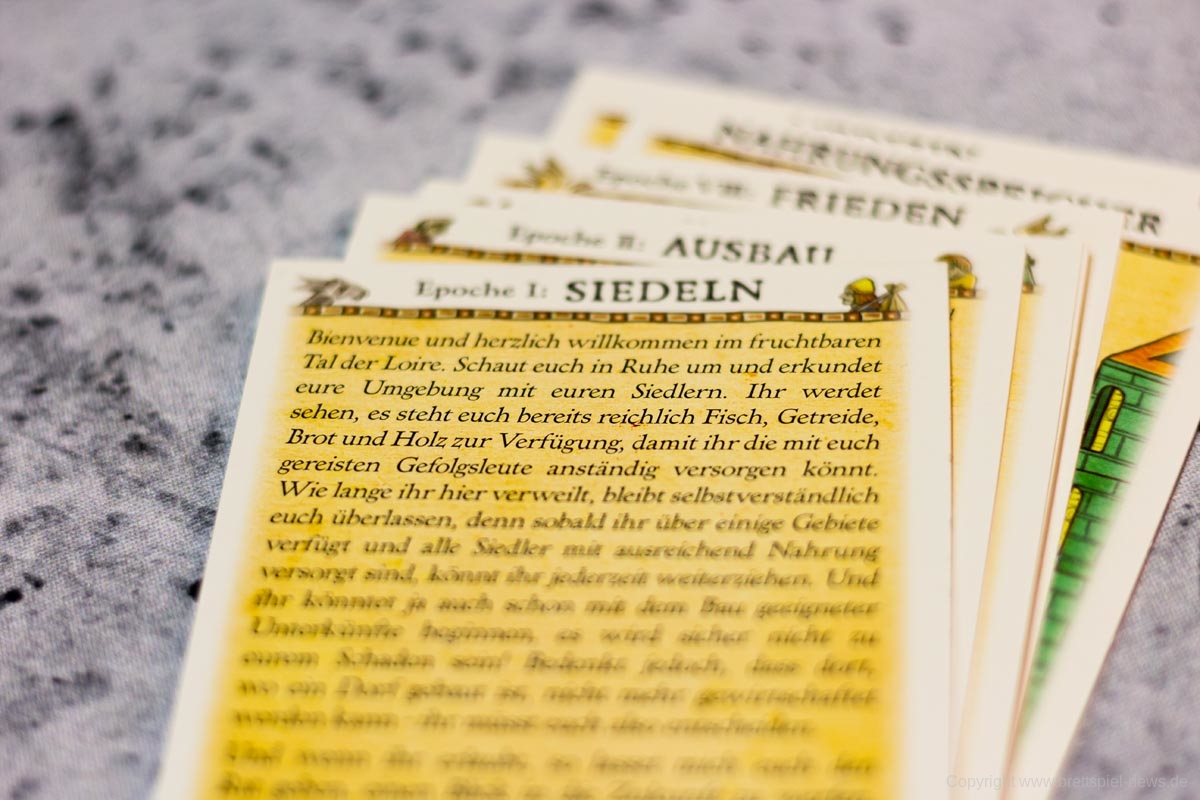 NAHRUNGSSPEICHER
Epoche VIII: FRIEDEN
Epoche II: AUSBAU
Epoche I: SIEDELN
Bienvenue und herzlich willkommen im fruchtbaren
Tal der Loire. Schaut euch in Ruhe um und erkundet
eure Umgebung mit euren Siedlern. Ihr werdet
sehen, es steht euch bereits reichlich Fisch, Getreide,
Brot und Holz zur Verfügung, damit ihr die mit euch
gereisten Gefolgsleute anständig versorgen könnt.
Wie lange ihr hier verweilt, bleibt selbstverständlich
euch überlassen, denn sobald ihr über einige Gebiete
verfügt und alle Siedler mit ausreichend Nahrung
versorgt sind, könnt ihr jederzeit weiterziehen. Und
ihr könntet ja auch schon mit dem Bau geeigneter
Unterkünfte beginnen, es wird sicher nicht zu
eurem Schaden sein! Bedenkt jedoch, dass dort,
wo ein Dorf gebaut ist, nicht mehr gewirtschaftet
werden kann - ihr müsst euch also entscheiden.
Copyright www.brettspiel-news.de